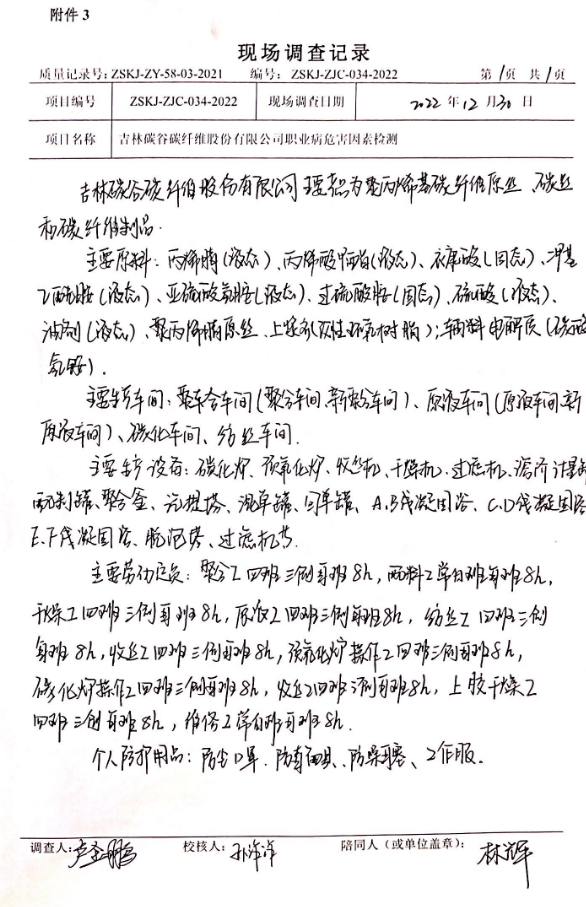 附件 3
现场调查记录
质量记录号: ZSKJ-ZY-58-03-2021 编号: ZSKJ-ZJC-034-2022 第 1 页 共 1 页
项目编号 ZSKJ-ZJC-034-2022 现场调查日期 2022 年 12 月 30 日
项目名称 吉林碳谷碳纤维股份有限公司职业病危害因素检测
吉林碳谷碳纤维股份有限公司主要产品为聚丙烯基碳纤维原丝、碳丝
和碳纤维制品.
主要原料: 丙烯腈(液态)、丙烯酸甲酯(液态)、衣康酸(固态)、二甲基
乙酰胺(液态)、亚硫酸氢铵(液态)、过硫酸铵(固态)、硫酸(液态)、
油剂(液态)、聚丙烯腈原丝、上浆剂(改性环氧树脂);辅料电解质(碳酸
氢铵).
主要生产车间: 聚合车间(聚合车间、新聚合车间)、原液车间(原液车间、新
原液车间)、碳化车间、纺丝车间.
主要生产设备: 碳化炉、预氧化炉、收丝机、干燥机、过滤机、溶剂计量
配制罐、聚合釜、汽提塔、混单罐、回单罐、A.B线凝固浴、C.D线凝固浴
E.F线凝固浴、脱泡塔、过滤机等.
主要劳动定员: 聚合工四班三倒每班8h, 配料工常白班每班8h,
干燥工四班三倒每班8h, 原液工四班三倒每班8h, 纺丝工四班三倒
每班8h, 收丝工四班三倒每班8h, 预氧化炉操作工四班三倒每班8h,
碳化炉操作工四班三倒每班8h, 收丝工四班三倒每班8h, 上胶干燥工
四班三倒每班8h, 维修工常白班每班8h.
个人防护用品: 防尘口罩、防毒面具、防噪耳塞、工作服.
调查人: 校核人: 孙洋洋 陪同人（或单位盖章）: 林辉